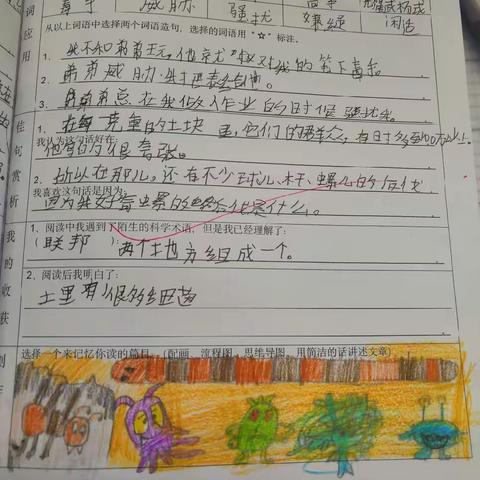 毒手 威胁 强扰
闲话
词 应用
从以上词语中选择两个词语造句，选择的词语用"☆"标注。
1、我不和弟弟玩，他就
2、弟弟威胁我把表给他。
3、弟弟总在我做作业的时候强扰我。
佳句赏析
1、在每一克重的土块里，它们的群众，有时多至100万以上。
我认为这句话好在：
他写的很夸张。
2、所以在那儿，还有不少球儿、杆、螺儿的后代
我喜欢这句话是因为：
因为我好奇螺的后代是什么。
我的收获
1、阅读中我遇到了陌生的科学术语，但是我已经理解了：
（联邦）：两个地方组成一个。
2、阅读后我明白了：
土里有很多细菌
选择一个来记忆你读的篇目。（配画、流程图、思维导图、用简洁的话讲述文章）